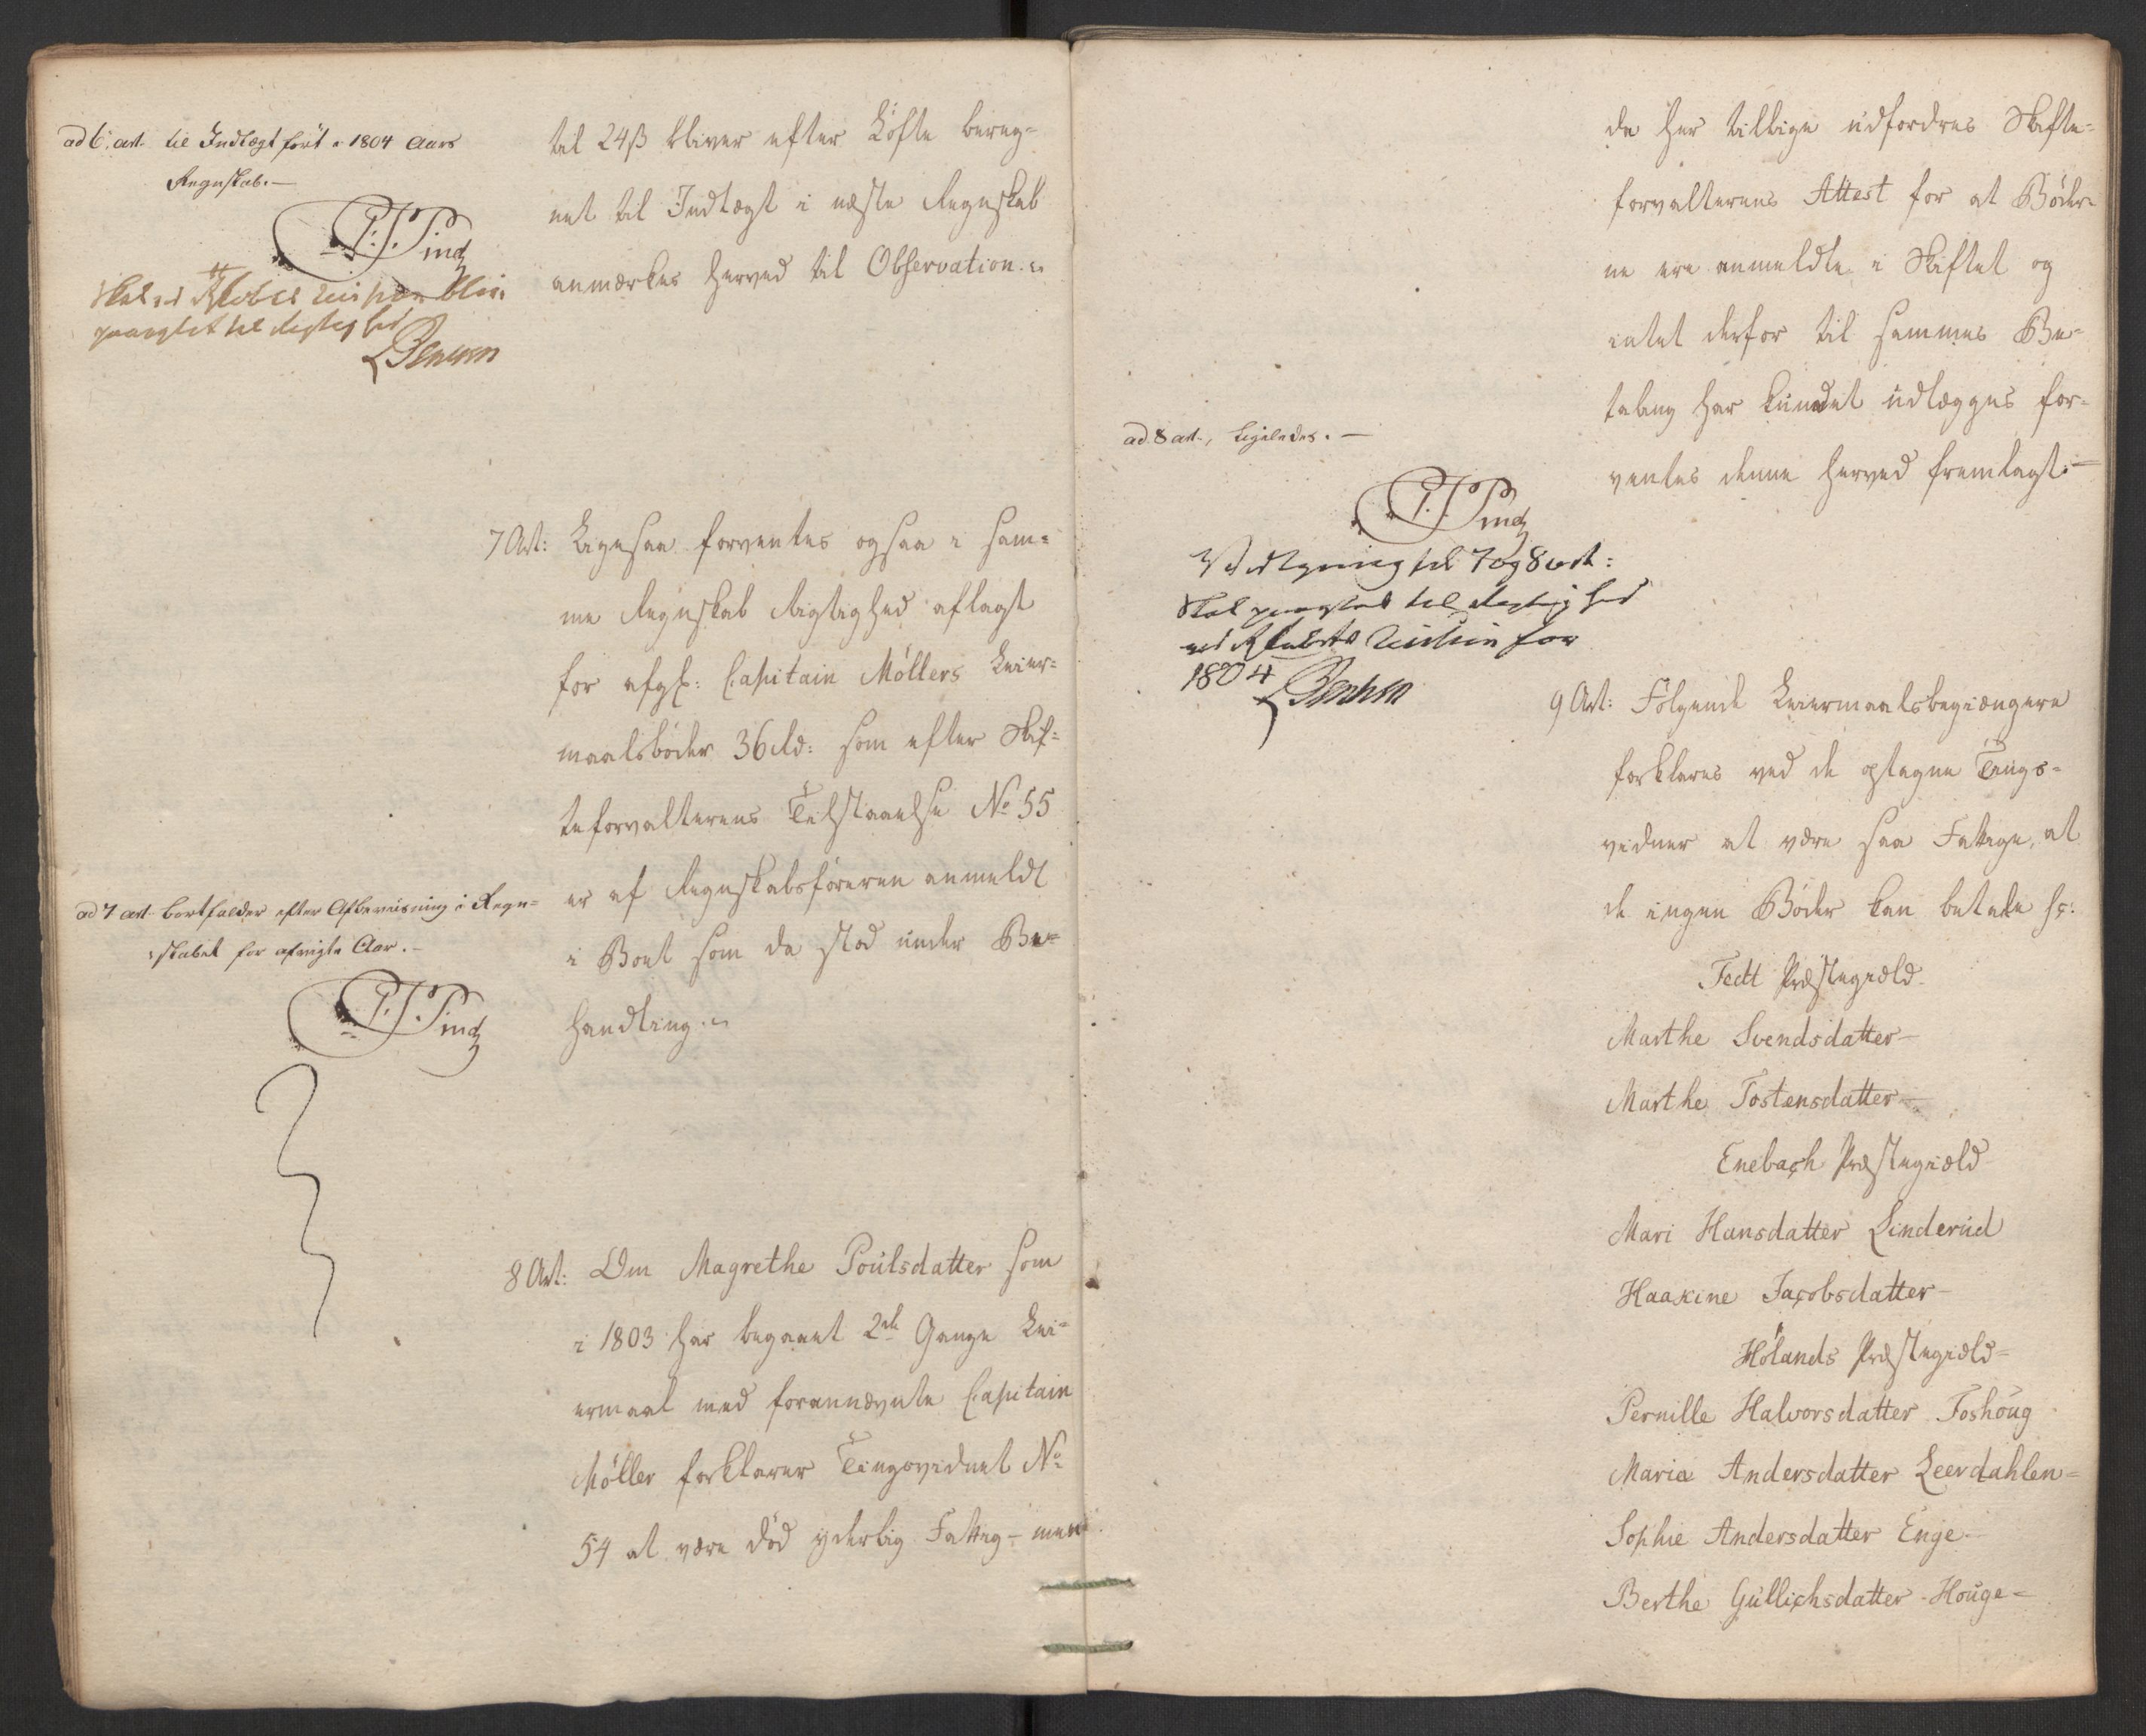 ad 6 art. til Indtægt ført i 1804 Aars
Regnskab.—
P. S. Pind
skal ved
paaagtet til Rigtighed
Bentzen
til 24 ß bliver efter Løfte bereg=
net til Indtægt i næste Regnskab
anmærkes herved til Observation.
7 Art: Ligesaa forventes ogsaa i sam=
me Regnskab Rigtighed aflagt
for afg: Capitain Møllers Leier=
maalsbøder 36 rd: som efter Skif=
teforvalterens Tilstaaelse No 55
er af Regnskabsføreren anmeldt
i Boet som da stod under Be=
handling.
ad 7 art. bortfalder efter Afbeviisning i Regn=
skabet for afvigte Aar.—
P. S. Pind
8 Art: Om Magrethe Poulsdatter som
i 1803 har begaaet 2de Gange Lei=
ermaal med forannævnte Capitain
Møller forklarer Tingsvidnet No
54 at være død yderlig Fattig — men
da her tillige udfordres Skifte=
forvalterens Attest for at Bøder=
ne ere anmeldte i Skiftet og
intet derfor til sammes Be=
taling har kundet udlægges for=
ventes denne herved fremlagt.—
ad 8 art., ligeledes.—
P. S. Pind
til 7 og 8 art:
skal paaagtes til Rigtighed
ved for
1804
Bentzen
9 Art: Følgende Leiermaalsbegiængere
forklares ved de optagne Tings=
vidner at være saa Fattige, at
de ingen Bøder kan betale s:
Fedt Præstegield.
Marthe Svendsdatter—
Marthe Tostensdatter—
Enebach Præstegield
Mari Hansdatter Linderud
Haakine Jacobsdatter—
Hølands Præstegield=
Pernille Halvorsdatter Foshoug
Maria Andersdatter Leerdahlen=
Sophie Andersdatter Enge—
Berthe Gullichsdatter Houge=